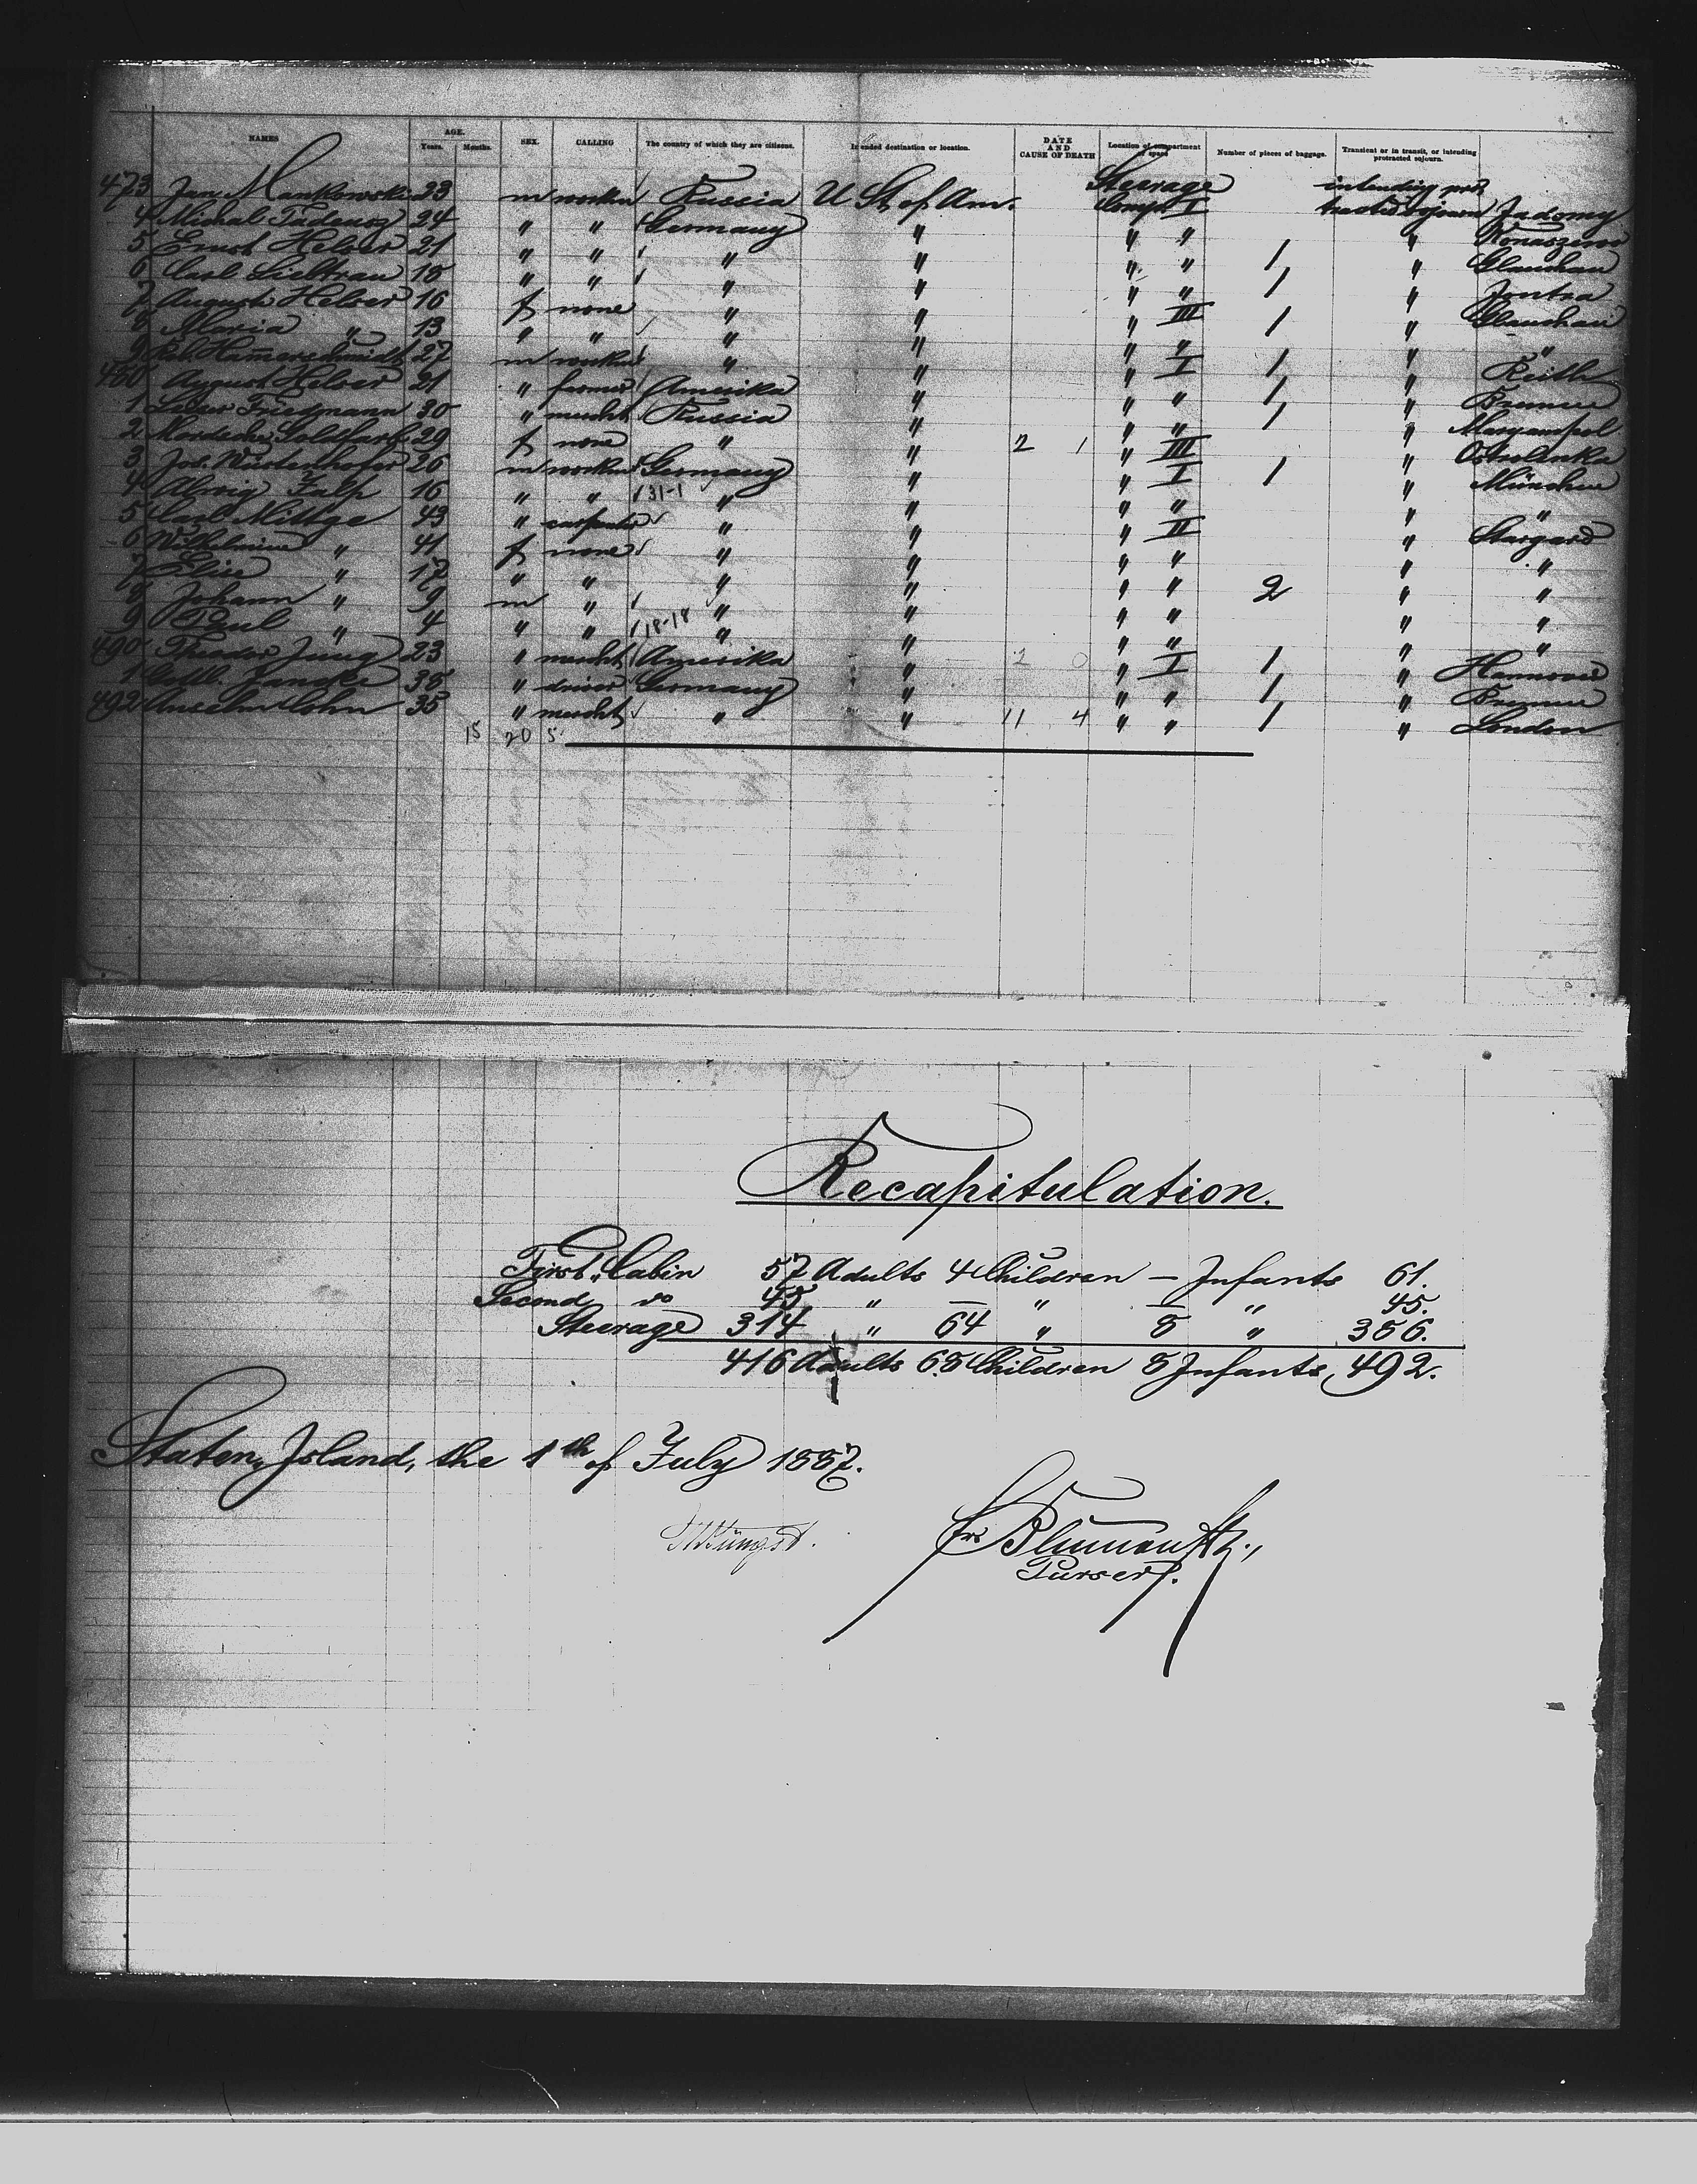 NAMES AGE. Years. Months. SEX. CALLING The country of which they are citizens. Intended destination or location. DATE AND CAUSE OF DEATH Location of compartment or space Number of pieces of baggage. Transient or in transit, or intending protracted sojourn.
473 Jan Mankowski 23 m worker Russia U St. of Am. Steerage Comp I intending protracted sojourn Jadomy
4 Michal 24 " " Germany " " " "
5 Ernst Helser 21 " " " " " " 1 " Glauchau
6 Carl 18 " " " " " " 1 "
7 Auguste Helser 16 f none " " " III 1 " Glauchau
8 Maria " 13 " " " " " " " "
9 Rob. Hamerschmidt 27 m worker " " " I 1 "
480 August Helser 21 " farmer Amerika " " " 1 " Bremen
1 Friedmann 30 " mercht. Russia " " " 1 " Maryampol
2 Goldfarb 29 f none " " 2 1 " III " Ostrolenka
3 Joh. Wüstenhofer 26 m worker Germany " " I 1 " München
4 16 " " 31-1 " " " " " "
5 Carl Mittge 43 " carpenter " " " II " Stargard
6 Wilhelmine " 41 f none " " " " " "
7 Elise " 17 " " " " " " " "
8 Johann " 9 m " " " " " 2 " "
9 Paul " 4 " " 18-18 " " " " " "
490 Theodor Jung 23 " mercht. Amerika " 2 0 " I 1 " Hannover
1 Gottl. Janofke 38 " driver Germany " " " 1 " Bremen
492 Anselm Cohn 35 " mercht. " " 11 4 " " 1 " London
15 20 5
Recapitulation.
First Cabin 57 Adults 4 Children — Infants 61.
Second do 45 " — " — " 45.
Steerage 314 " 64 " 8 " 386.
416 Adults 68 Children 8 Infants, 492.
Staten Island, the 1th of July 1887.
Purser.